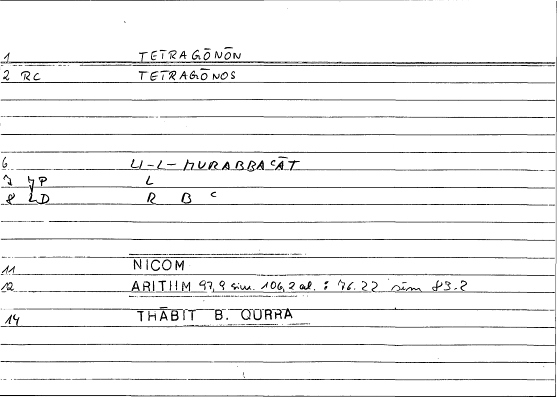 1 TETRAGŌNŌN
2 RC TETRAGŌNOS
6 LI-L-MURABBAʿĀT
7 L
8 LD R B ʿ
11 NICOM
12 ARITHM 97,9 sim. 106,2 al. : 76.22 sim 83.2
14 THĀBIT B. QURRA